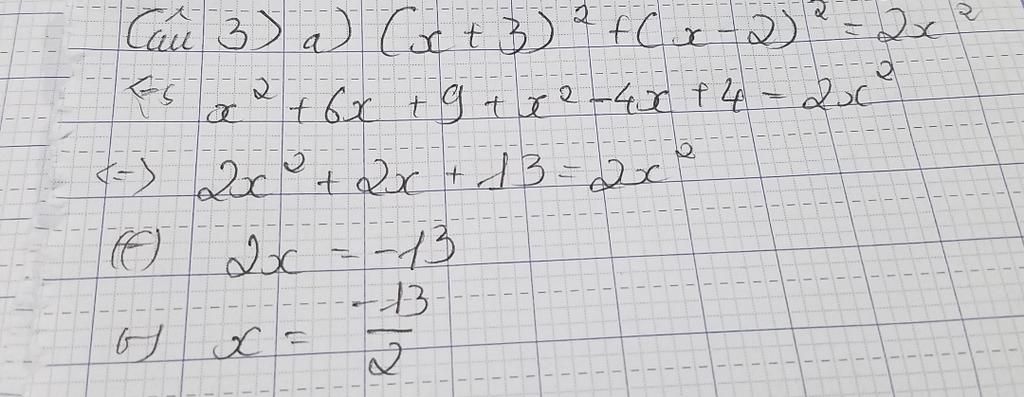 Câu 3) a) (x + 3)² + (x - 2)² = 2x²
<=> x² + 6x + 9 + x² - 4x + 4 = 2x²
<=> 2x² + 2x + 13 = 2x²
<=> 2x = -13
<=> x = -13/2